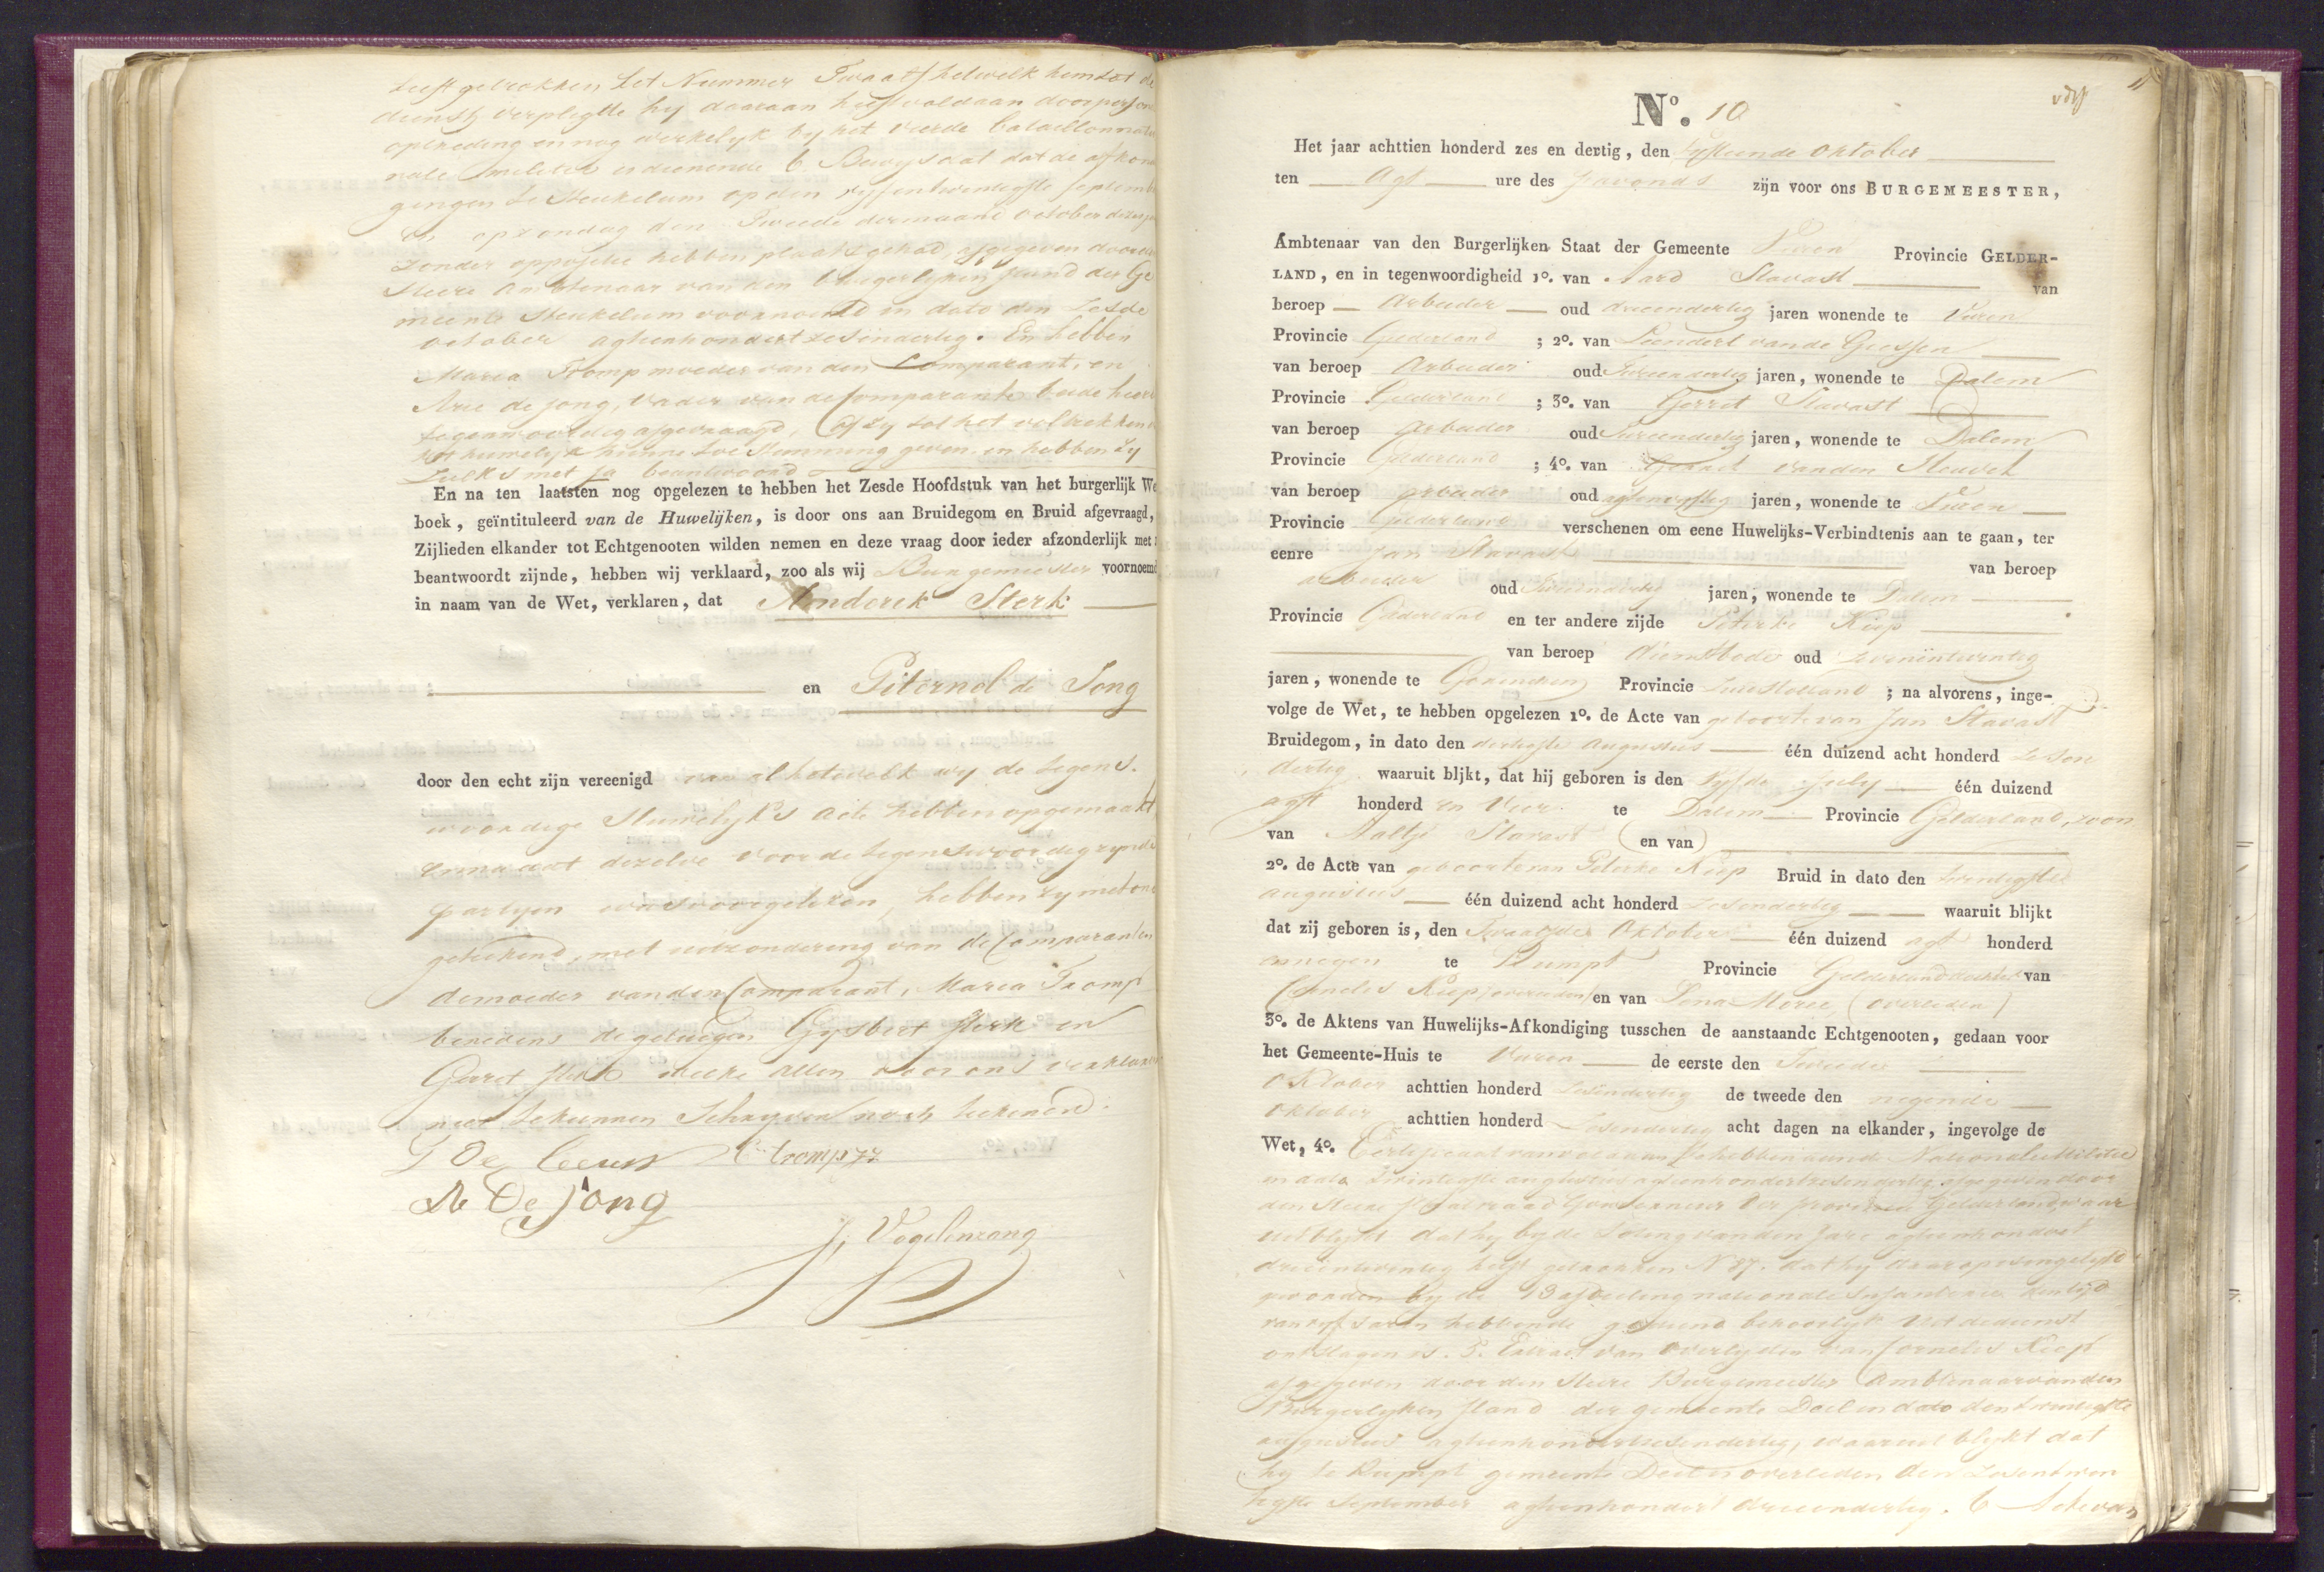 heeft getrokken het Nummer Twaalf hetwelk hem tot de
dienst verpligtte hy daaraan heeft voldaan door persone
optreding en nog werkelyk by het vierde bataillon natio
nale militie is dienende 6 Bewys dat de afkon
gingen te Heukelum op den vyfentwentigste septemb
en op zondag den Tweede der maand october dezes
zonder oppositie hebben plaats gehad, afgegeven door
Heere Ambtenaar van den burgerlyken stand der Ge
meente Heukelum voornoemd in dato den Zesde
october agtienhondert zesendertig. En hebben
Maria Tromp moeder van den Comparant, en
Arie de Jong, Vader van de Comparante beide hier
tegenwoordig afgevraagd, of zy tot het voltrekken
het huwelyk hunne toe Stemming geven en hebben zy
zulks met ja beantwoord
En na ten laatsten nog opgelezen te hebben het Zesde Hoofdstuk van het burgerlijk We
boek, geïntituleerd van de Huwelijken, is door ons aan Bruidegom en Bruid afgevraagd,
Zijlieden elkander tot Echtgenooten wilden nemen en deze vraag door ieder afzonderlijk met
beantwoordt zijnde, hebben wij verklaard, zoo als wij Burgemeester voornoemd
in naam van de Wet, verklaren, dat Hendrik Sterk
en Piternol de Jong
door den echt zijn vereenigd van al hetwelk wy de tegens-
woordige Huwelyks acte hebben opgemaakt
en na dat dezelve voor de tegenswoordig zynde
partyen was voorgelezen, hebben zy met ons
getekend, met uitzondering van de Comparanten
de moeder van den Comparant, Maria Tromp
benevens de getuigen Gysbert Sterk en
Gerret Sterk welke allen voor ons verklaren
niet te kunnen Schryven noch teekenen.
G De Leeuw tromp zz
A De Jong
J, Vogelenzang
11
N°. 10
Het jaar achttien honderd zes en dertig, den vyftiende oktober
ten Agt ure des s'avonds zijn voor ons BURGEMEESTER,
Ambtenaar van den Burgerlijken Staat der Gemeente Vuren Provincie GELDER-
LAND, en in tegenwoordigheid 1°. van Aard Slavast van
beroep Arbeider oud drieendertig jaren wonende te Vuren
Provincie Gelderland ; 2°. van Leendert vande Giessen
van beroep Arbeider oud Tweeendertig jaren, wonende te Dalem
Provincie Gelderland ; 3°. van Gerret Slavast
van beroep Arbeider oud Tweeendertig jaren, wonende te Dalem
Provincie Gelderland ; 4°. van Gerret vanden Heuvel
van beroep arbeider oud agtenvyftig jaren, wonende te Vuren
Provincie Gelderland verschenen om eene Huwelijks-Verbindtenis aan te gaan, ter
eenre Jan Slavast van beroep
arbeider oud Tweeendertig jaren, wonende te Dalem
Provincie Gelderland en ter andere zijde Peterke Kiep
van beroep dienstbode oud zevenentwentig
jaren, wonende te Gorinchem Provincie Zuidholland ; na alvorens, inge-
volge de Wet, te hebben opgelezen 1°. de Acte van geboorte van Jan Slavast
Bruidegom, in dato den dertigste Augustus één duizend acht honderd zesen
dertig waaruit blijkt, dat hij geboren is den vyfde July één duizend
agt honderd en Vier te Dalem Provincie Gelderland, zoon
van Aaltje Slavast (en van)
2°. de Acte van geboorte van Peterke Kiep Bruid in dato den twentigste
augustus één duizend acht honderd zesendertig waaruit blijkt
dat zij geboren is, den Twaalfde Oktober één duizend agt honderd
en negen te Rumpt Provincie Gelderland dochter van
Cornelis Kiep (overleden) en van Lena Moree (overleden)
3°. de Aktens van Huwelijks-Afkondiging tusschen de aanstaande Echtgenooten, gedaan voor
het Gemeente-Huis te Vuren de eerste den Tweede
Oktober achttien honderd zesendertig de tweede den negende
oktober achttien honderd zesendertig acht dagen na elkander, ingevolge de
Wet, 4°. Certificaat van voldaan te hebben aan de Nationale Militie
in dato twintigste augustus agtienhondert zesendertig afgegeven door
den Heere Staatsraad Gouverneur der provincie Gelderland waar
uit blykt dat hy by de Loting van den Jare agtienhondert
drieentwentig heeft getrokken N 87. dat hy daarop is ingelyfd
geworden by de 13 afdeeling nationale Infanterie den tyd
van vyf Jaren hebbende gediend behoorlyk uit de dienst
ontslagen is. 5. Extract van overlyden van Cornelis Kiep
afgegeven door den Heere Burgemeester Ambtenaar van den
Burgerlyken Stand der gemeente Deil in dato den twentigste
augustus agtienhondert zesendertig, waaruit blykt dat
hy te Rumpt gemeente Deil is overleden den zesentwen
tigste September agtienhondert drieendertig. 6 Acte van